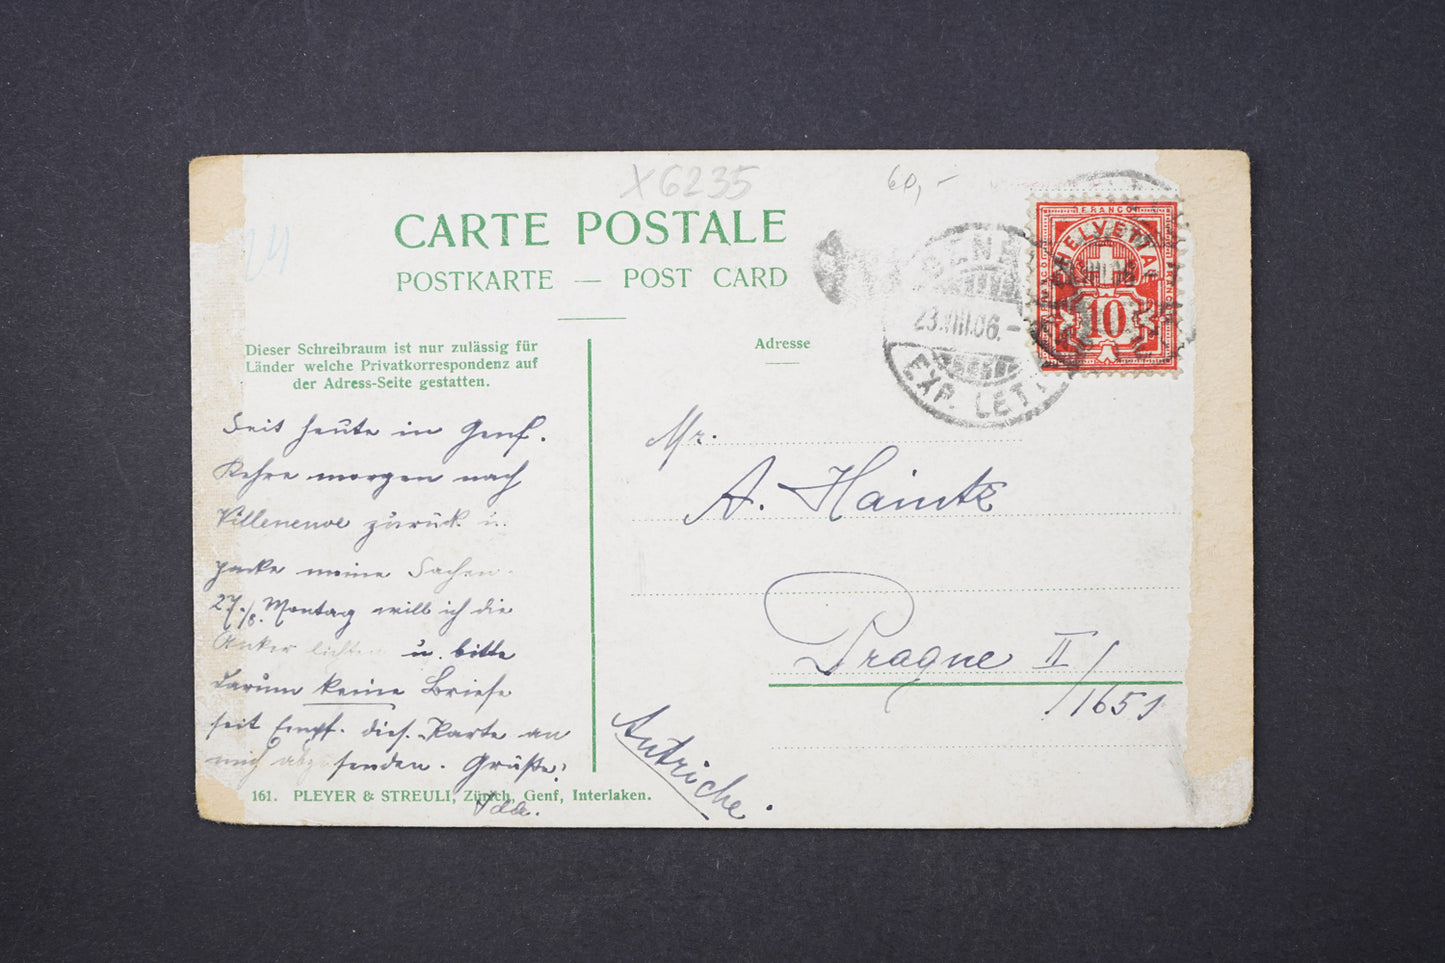 X 6235
60,-
24
CARTE POSTALE
POSTKARTE — POST CARD
Dieser Schreibraum ist nur zulässig für
Länder welche Privatkorrespondenz auf
der Adress-Seite gestatten.
Adresse
FRANCO
HELVETIA
10
23.VIII.06.-
EXP. LETT
Seit heute in Genf.
Kehre morgen nach
Villeneuve zurück u.
packe meine Sachen.
27./8. Montag will ich die
Anker lichten u. bitte
darum keine Briefe
seit Empf. dies. Karte an
mich abzusenden. Grüße!
Ida.
Mr.
A. Haintz
Prague II/1651
Autriche.
161. PLEYER & STREULI, Zürich, Genf, Interlaken.